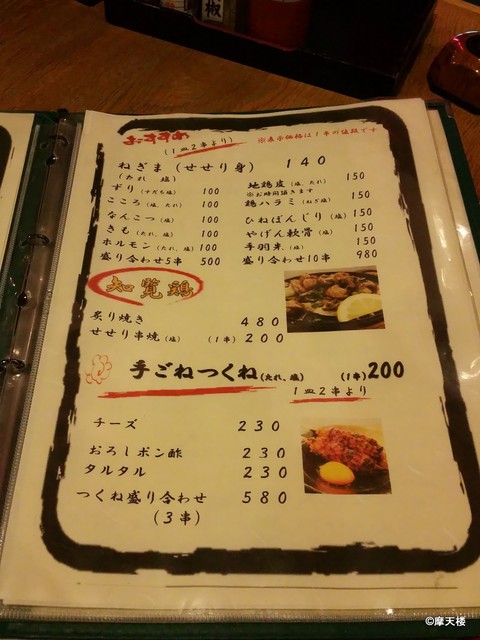 椒
おすすめ
(1皿2串より)
※表示価格は1串の値段です
ねぎま(せせり身) 140
(たれ、塩)
ずり(すだち塩) 100
こころ(塩、たれ) 100
なんこつ(塩) 100
きも(たれ、塩) 100
ホルモン(たれ、塩) 100
盛り合わせ5串 500
地鶏皮(塩、たれ) 150
※お時間頂きます
鶏ハラミ(ねぎ塩) 150
ひねぽんじり(塩) 150
やげん軟骨(塩) 150
手羽先(塩) 150
盛り合わせ10串 980
知覧鶏
炙り焼き 480
せせり串焼(塩) (1串)200
手ごねつくね(たれ、塩) (1串)200
1皿2串より
チーズ 230
おろしポン酢 230
タルタル 230
つくね盛り合わせ 580
(3串)
©摩天楼